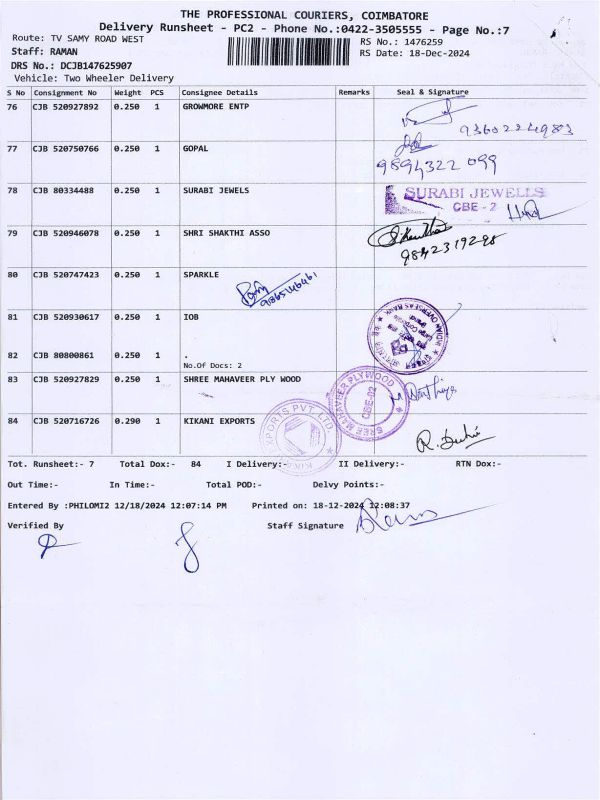 THE PROFESSIONAL COURIERS, COIMBATORE
Delivery Runsheet - PC2 - Phone No.:0422-3505555 - Page No.:7
Route: TV SAMY ROAD WEST
RS No.: 1476259
Staff: RAMAN
RS Date: 18-Dec-2024
DRS No.: DCJB147625907
Vehicle: Two Wheeler Delivery
S No Consignment No Weight PCS Consignee Details Remarks Seal & Signature
76 CJB 520927892 0.250 1 GROWMORE ENTP
9360224983
77 CJB 520750766 0.250 1 GOPAL
9894322 099
78 CJB 80334488 0.250 1 SURABI JEWELS
SURABI JEWELLS
CBE - 2
79 CJB 520946078 0.250 1 SHRI SHAKTHI ASSO
9842319298
80 CJB 520747423 0.250 1 SPARKLE
9865146461
81 CJB 520930617 0.250 1 IOB
INDIAN OVERSEAS BANK
82 CJB 80800861 0.250 1 .
No.Of Docs: 2
83 CJB 520927829 0.250 1 SHREE MAHAVEER PLY WOOD
SHREE MAHAVEER PLYWOOD
CBE-02
84 CJB 520716726 0.290 1 KIKANI EXPORTS
EXPORTS PVT. LTD.
Tot. Runsheet:- 7 Total Dox:- 84 I Delivery:- II Delivery:- RTN Dox:-
Out Time:- In Time:- Total POD:- Delvy Points:-
Entered By :PHILOMI2 12/18/2024 12:07:14 PM Printed on: 18-12-2024 12:08:37
Verified By Staff Signature